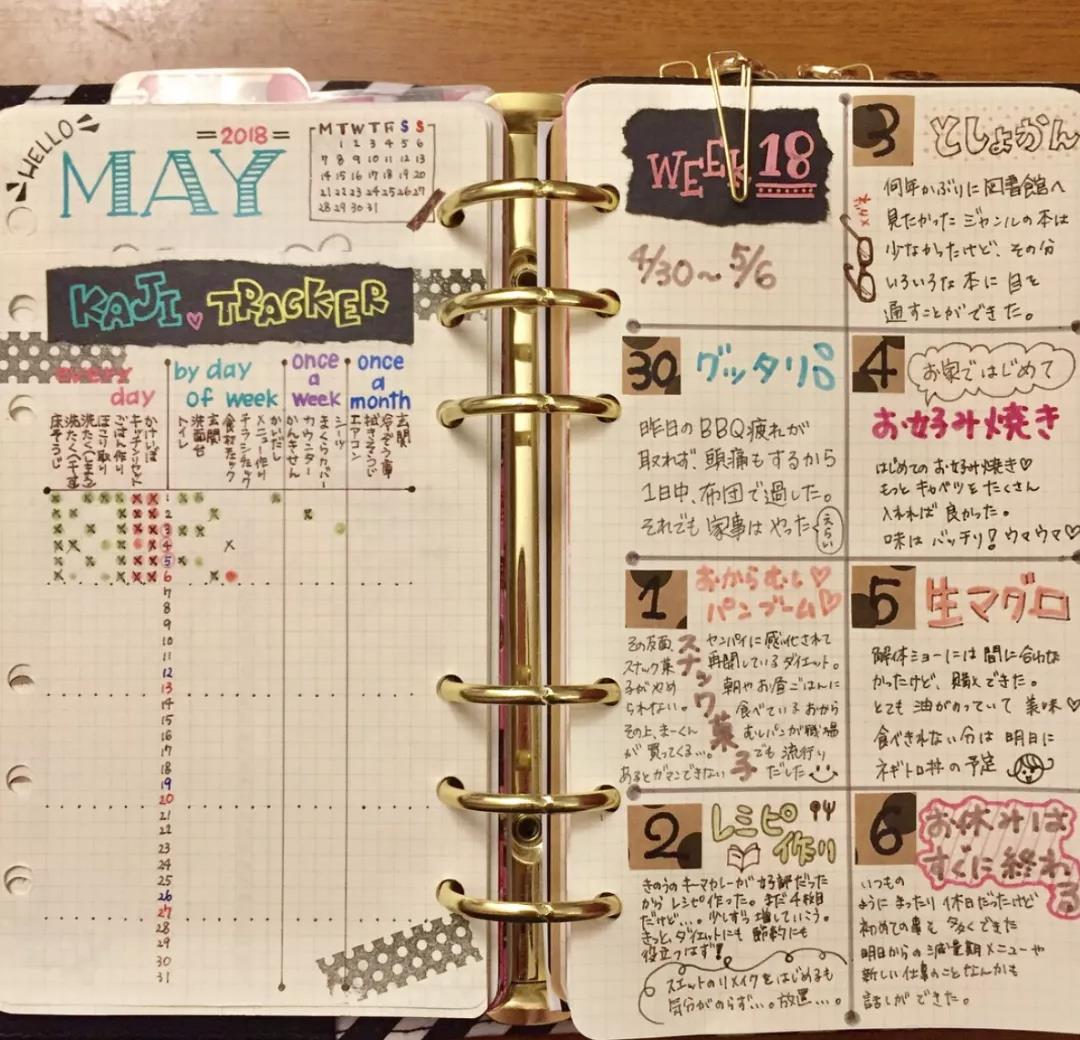 HELLO
=2018=
MAY
M T W T F S S
1 2 3 4 5 6
7 8 9 10 11 12 13
14 15 16 17 18 19 20
21 22 23 24 25 26 27
28 29 30 31
KAJI♡TRACKER
every day
by day of week
once a week
once a month
床そうじ
洗たく(干す)
洗たく(しまう)
ほこり取り
ごはん作り
キッチンリセット
かけいぼ
トイレ
洗面台
玄関
食材チェック
チラシチェック
メニュー作り
かいだし
かんきせん
カウンター
まくらカバー
シーツ
エアコン
拭きそうじ
冷ぞう庫
玄関
1
2
3
4
5
6
7
8
9
10
11
12
13
14
15
16
17
18
19
20
21
22
23
24
25
26
27
28
29
30
31
WEEK 18
4/30～5/6
30 グッタリ
昨日のBBQ疲れが
取れず、頭痛もするから
1日中、布団で過した。
それでも家事はやった
えらい
1 おからむし♡
パンブーム♡
ヤンパイに感化されて
再開しているダイエット。
朝やお昼ごはんに
食べているおから
むしパンが職場
でも流行り
だした
スナック菓子
その反面、
スナック菓
子がやめ
られない。
その上、まーくん
が買ってくる…。
あるとガマンできない
2 レシピ作り
きのうのキーマカレーが好評だった
からレシピ作った。まだ4枚目
だけど…。少しずつ増していこう。
きっと、ダイエットにも節約にも
役立つはず!
スエットのリメイクをはじめるも
気分がのらず…。放置…。
3 としょかん
何年かぶりに図書館へ
見たかったジャンルの本は
少なかったけど、その分
いろいろな本に目を
通すことができた。
メガネ
4 お家ではじめて
お好み焼き
はじめてのお好み焼き♡
もっとキャベツをたくさん
入れれば良かった。
味はバッチリ!ウマウマ♡
5 生マグロ
解体ショーには間に合わな
かったけど、購入できた。
とても油がのっていて美味♡
食べきれない分は明日に
ネギトロ丼の予定
6 お休みは
すぐに終わる
いつもの
ようにまったり休日だったけど
初めての事も多くできた
明日からの減量期メニューや
新しい仕事のことなんかも
話しができた。